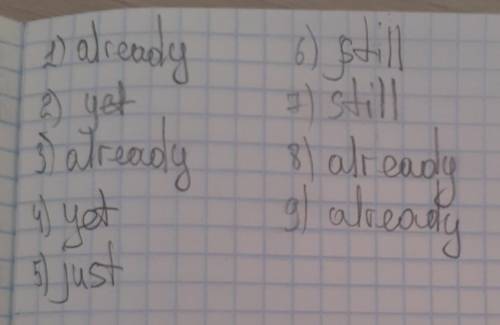 1) already
2) yet
3) already
4) yet
5) just
6) still
7) still
8) already
9) already